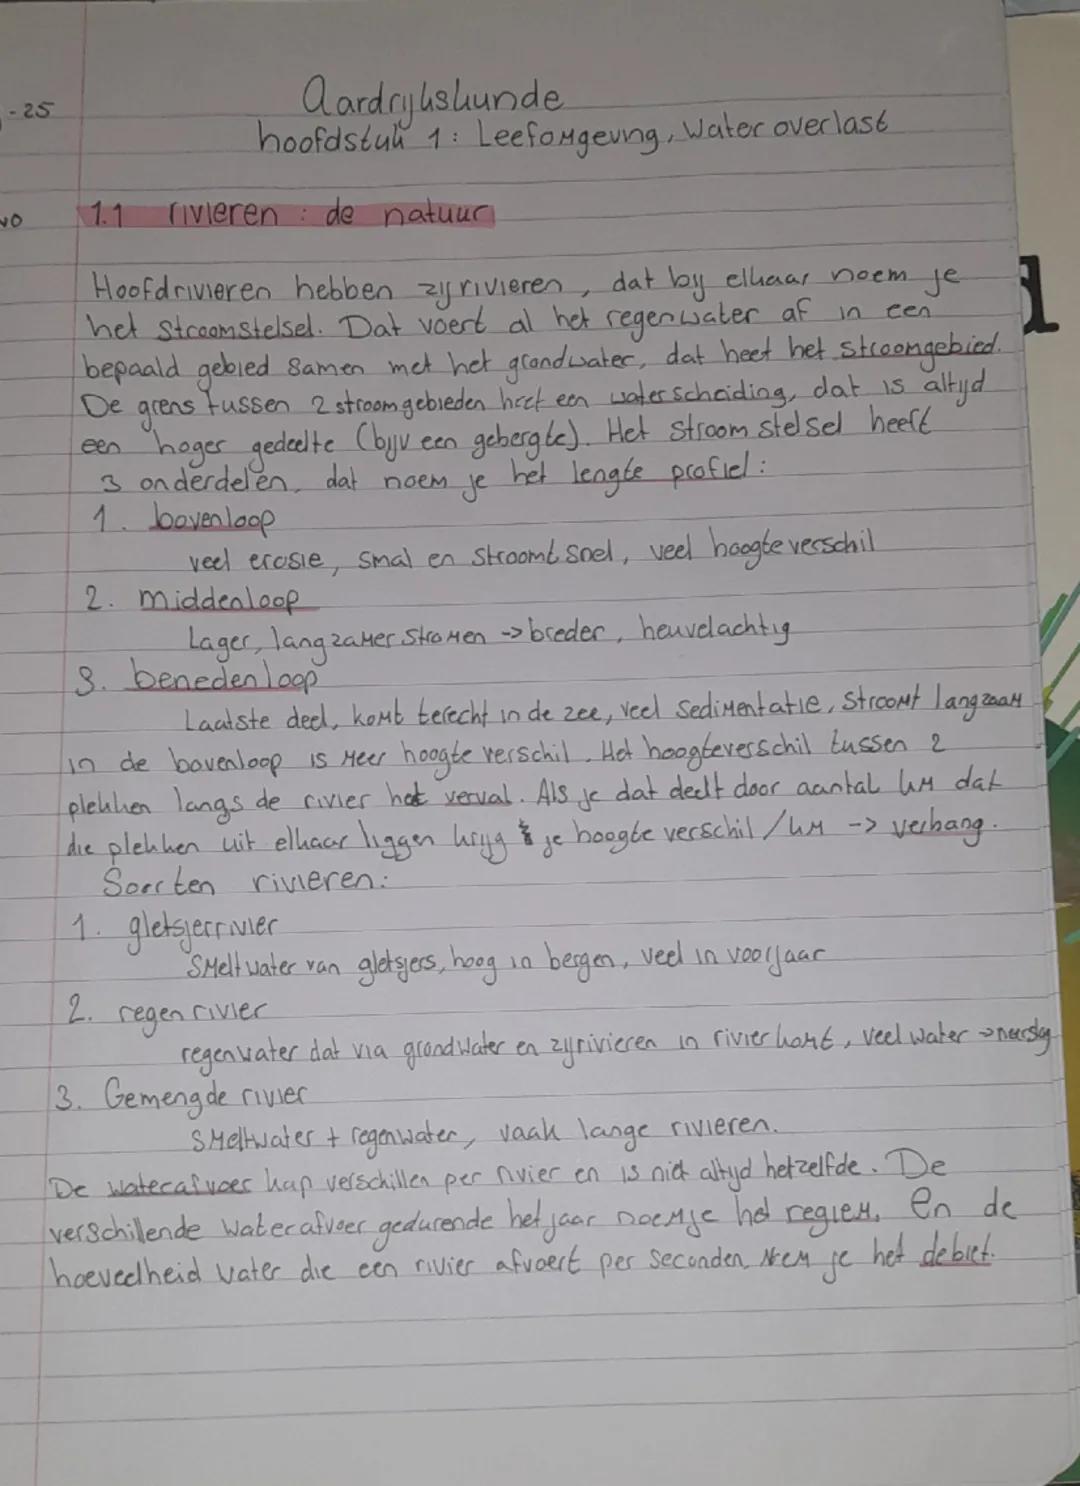 -25
Aardrijkskunde
hoofdstuk 1: Leefomgeving, Wateroverlast
vo
1.1 rivieren: de natuur
Hoofdrivieren hebben zijrivieren, dat bij elkaar noem je
het stroomstelsel. Dat voert al het regenwater af in een
bepaald gebied samen met het grondwater, dat heet het stroomgebied.
De grens tussen 2 stroomgebieden heet een waterscheiding, dat is altijd
een hoger gedeelte (bijv een gebergte). Het stroomstelsel heeft
3 onderdelen, dat noem je het lengte profiel:
1. bovenloop
veel erosie, smal en stroomt snel, veel hoogteverschil
2. middenloop
Lager, langzamer stromen -> breder, heuvelachtig
3. benedenloop
Laatste deel, komt terecht in de zee, veel sedimentatie, stroomt langzaam
in de bovenloop is meer hoogte verschil. Het hoogteverschil tussen 2
plekken langs de rivier het verval. Als je dat deelt door aantal km dat
die plekken uit elkaar liggen krijg je hoogte verschil/km -> verhang.
Soorten rivieren:
1. gletsjerrivier
Smeltwater van gletsjers, hoog in bergen, veel in voorjaar
2. regenrivier
regenwater dat via grondwater en zijrivieren in rivier komt, veel water -> neerslag
3. Gemengde rivier
Smeltwater + regenwater, vaak lange rivieren.
De waterafvoer kan verschillen per rivier en is niet altijd hetzelfde. De
verschillende waterafvoer gedurende het jaar noem je het regiem. en de
hoeveelheid water die een rivier afvoert per seconden, noem je het debiet.